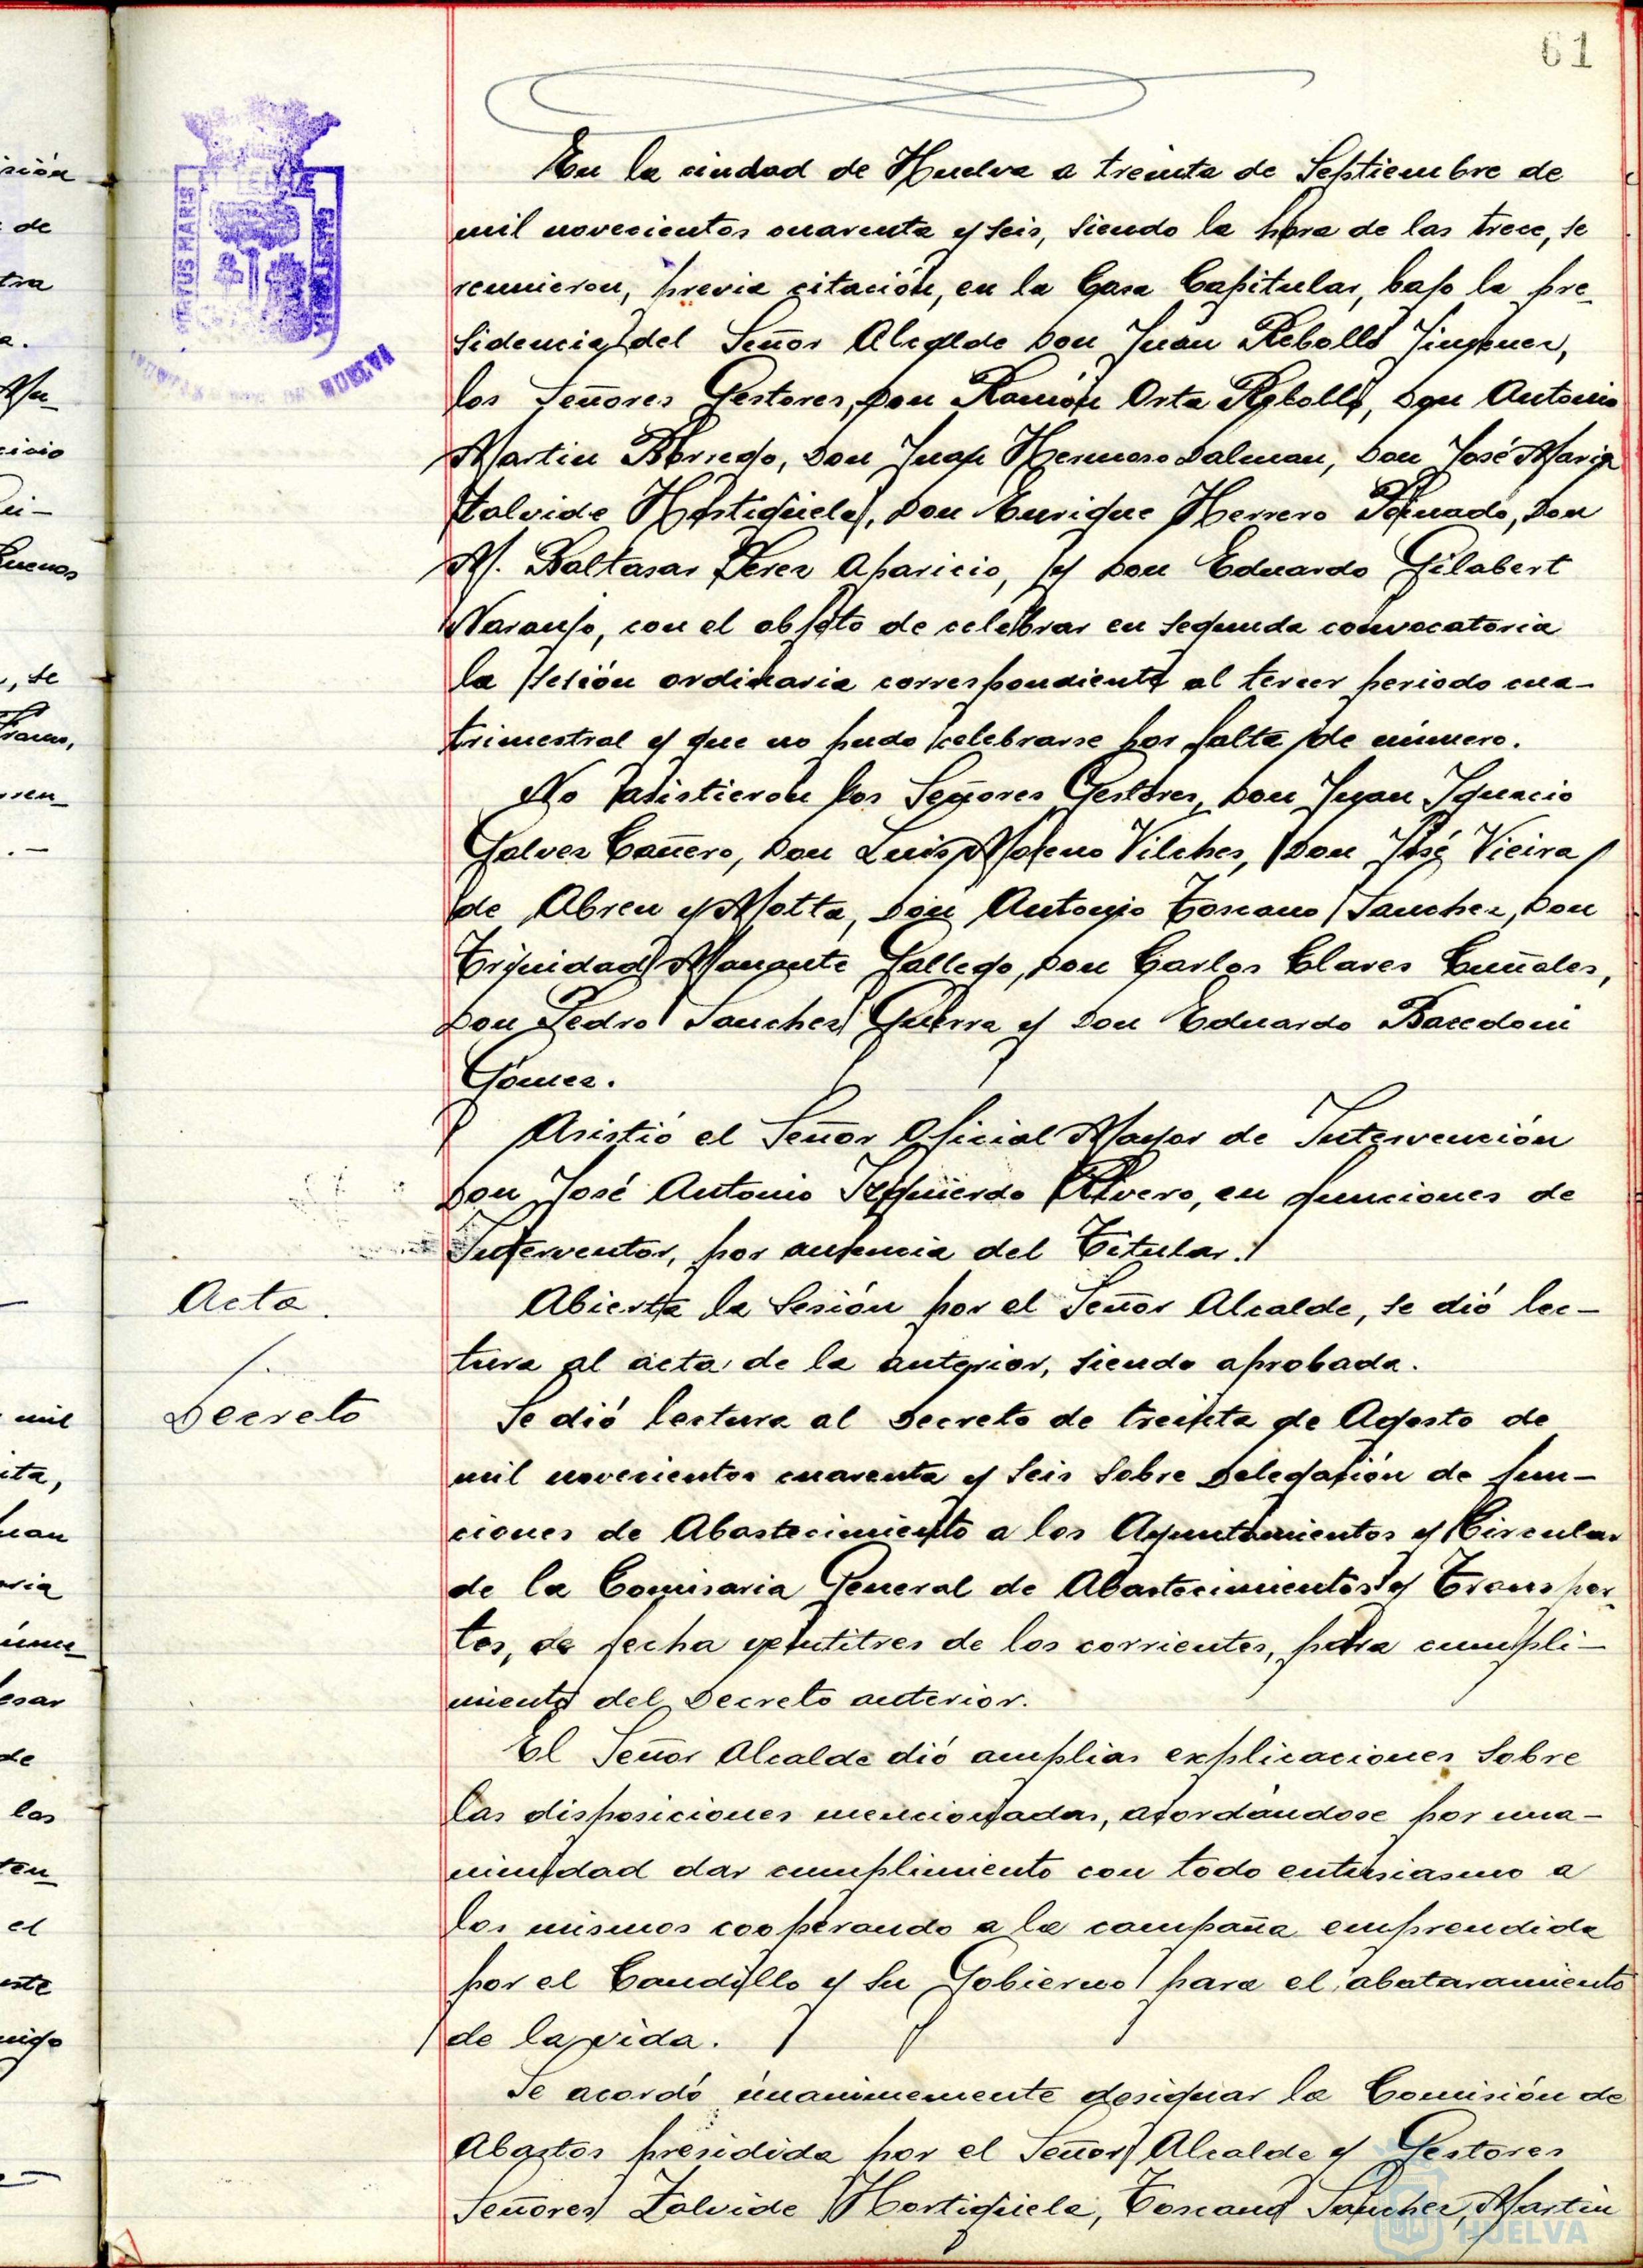 61
En la ciudad de Huelva a treinta de Septiembre de
mil novecientos cuarenta y seis, siendo la hora de las trece, se
reunieron, previa citación, en la Casa Capitular, bajo la pre-
sidencia del Señor Alcalde Don Juan Rebollo Jimenez,
los Señores Gestores, Don Ramón Orta Rebollo, Don Antonio
Martin Borrego, Don Juan Hermoso Dalman, Don José Maria
Zalvide Hortigüela, Don Enrique Herrero Donado, Don
M. Baltasar Perez Aparicio, y Don Eduardo Gilabert
Naranjo, con el objeto de celebrar en segunda convocatoria
la sesión ordinaria correspondiente al tercer periodo cua-
trimestral y que no pudo celebrarse por falta de número.
No asistieron los Señores Gestores, Don Juan Ignacio
Galvez Cañero, Don Luis Moreno Vilches, Don José Vieira
de Abreu y Motta, Don Antonio Toscano Sanchez, Don
Trinidad Manante Gallego, Don Carlos Clares Cuñales,
Don Pedro Sanchez Guerra y Don Eduardo Bacedoni
Gómez.
Asistió el Señor Oficial Mayor de Intervención
Don José Antonio Izquierdo Rivero, en funciones de
Interventor, por ausencia del Titular.
Acta.
Abierta la Sesión por el Señor Alcalde, se dió lec-
tura al acta de la anterior, siendo aprobada.
Decreto
Se dió lectura al Decreto de treinta de Agosto de
mil novecientos cuarenta y seis sobre Delegación de fun-
ciones de Abastecimiento a los Ayuntamientos y Circular
de la Comisaria General de Abastecimientos y Transpor-
tes, de fecha veintitres de los corrientes, para cumpli-
miento del Decreto anterior.
El Señor Alcalde dió amplias explicaciones sobre
las disposiciones mencionadas, acordándose por una-
nimidad dar cumplimiento con todo entusiasmo a
los mismos cooperando a la campaña emprendida
por el Caudillo y su Gobierno para el abataramiento
de la vida.
Se acordó únanimemente designar la Comisión de
Abastos presidida por el Señor Alcalde y Gestores
Señores Zalvide Hortigüela, Toscano Sanchez, Martin
HUELVA